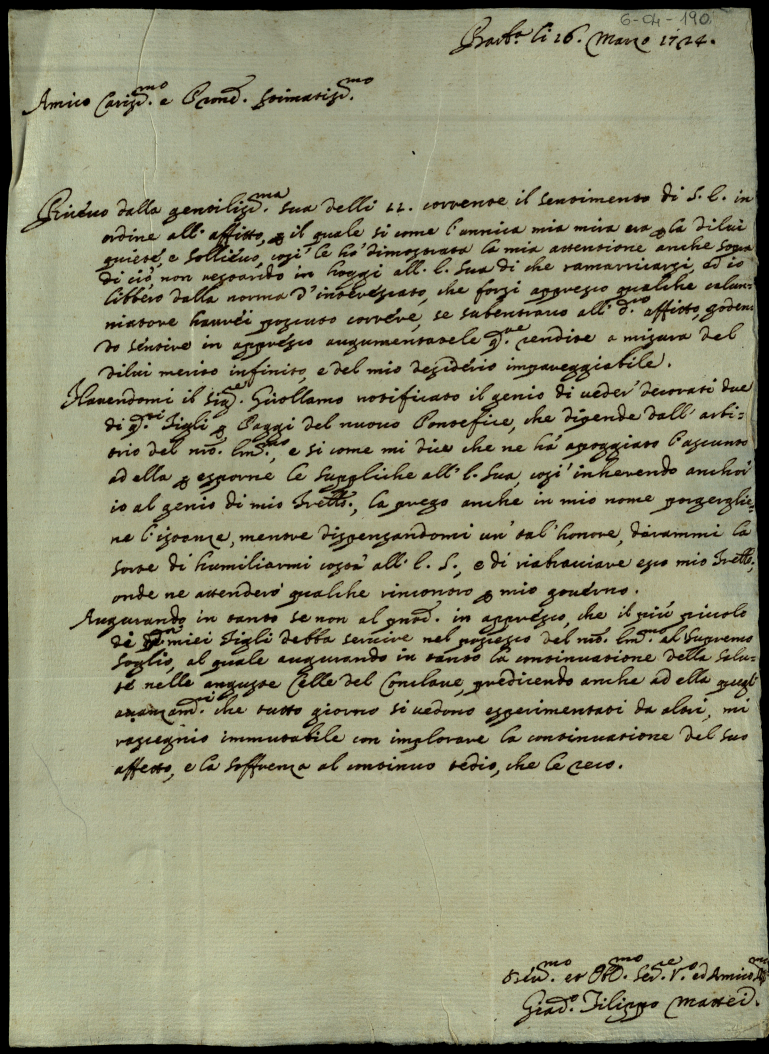 6-04-190
Barb.ª li 16. Marzo 1724.
Amico Cariss.mo e Pron. Stimatiss.mo
Ricevo dalla gentiliss.ma sua delli 11. corrente il sentimento di S. E. in
ordine all'affitto, il quale si come l'unnica mia mira era p la dilui
quiete, e sollievo, così le hò dimostrata la mia attenzione anche sopra
di ciò, non restando in hoggi all'E. Sua di che ramaricarsi, ed io
libbero dalla norma d'interessato, che forsi appresso qualche calun-
niatore haurei possuto correre, se subentravo all'd.to affitto, goden-
do sentire in appresso augumentarsele q.ste rendite a misura del
dilui merito infinito, e del mio desiderio impareggiabile.
Havendomi il Sig.re Girollamo notificato il genio di veder decorati due
di q.sti figli p Paggi del nuovo Pontefice, che dipende dall'arbi-
trio del nro. Em.mo, e si come mi dice che ne hà apoggiato l'assunto
ad ella p esporne le suppliche all'E. Sua, così inherendo anchor
io al genio di mio Frello., la prego anche in mio nome porgerglie-
ne l'istanze, mentre dispensandomi un'tal'honore, darammi la
sorte di humiliarmi costà all'E. S., e di riabracciare esso mio Frello,
onde ne attenderò qualche rincontro p mio governo.
Augurando in tanto se non al pnte. in appresso, che il più piccolo
de miei figli debba servire nel possesso del nro. Em.mo al Supremo
Soglio, al quale augurando in tanto la continuatione della salu-
te nelle anguste Celle del Conclave, predicendo anche ad ella quegl'
avanzam.ti che tutto giorno si vedono esperimentati da altri, mi
rassegnio immutabile con implorare la continuatione del suo
affetto, e la sofferenza al continuo tedio, che le reco.
Dev.mo et Obb.mo Ser.re V.ro ed Amico
Giac.o Filippo Mattei.